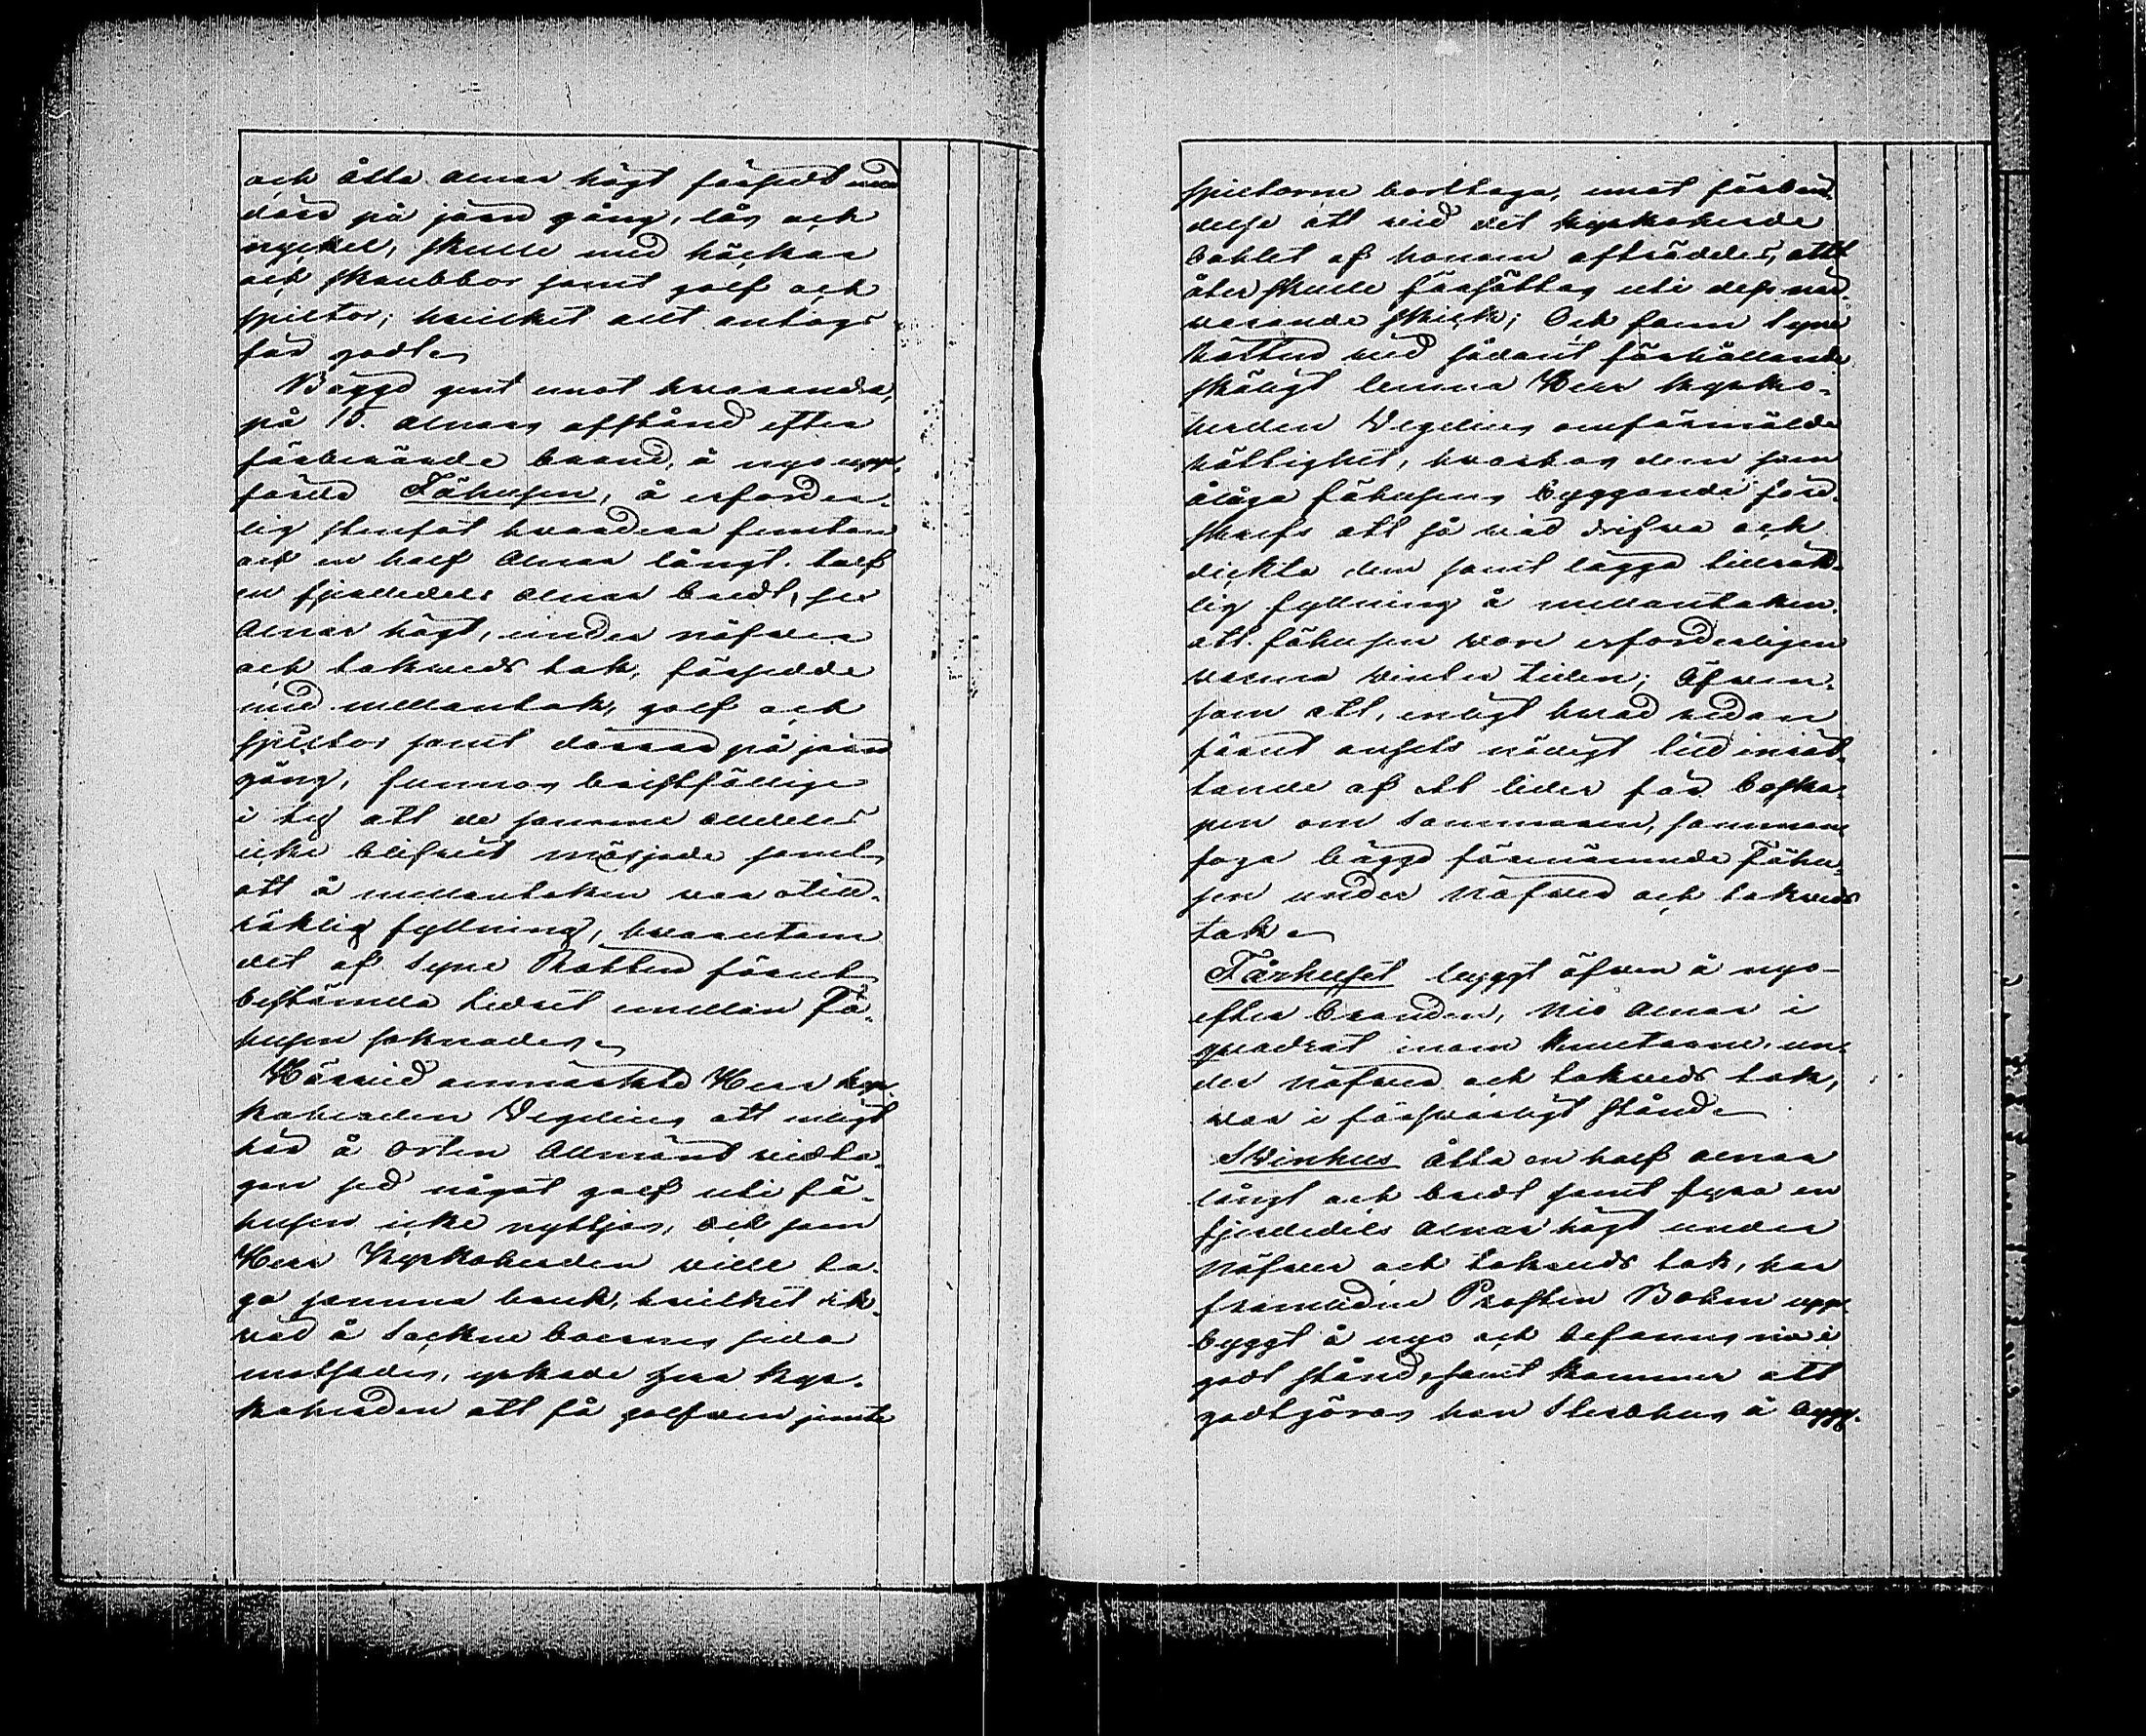 och åtta alnar högt försedt med
dörr på järn gång, lås och
nyckel, skulle med häckar
och skrubbor samt golf och
spiltor; hvilket allt antogs
för godt.
Bägge gent emot hvarandra,
på 15. alnars afstånd efter
förberörde brand, å nyo upp-
förde Fähusen, å erforder-
lig stenfot hvardera femton
och en half alnar långt. tolf
en fjerdedels alnar bredt, sex
alnar högt, under näfver
och takveds tak, försedde
med mellantak, golf och
spiltor samt dörrar på järn
gång, funnos bristfällige
i ty att de samme alldeles
icke blifvit mossjade samt
att å mellantaken var otill-
räklig fyllning, hvarutom
det af Syne Rätten förut
bestämda lidret emellan Fä-
husen saknades.
Härvid anmärkte Herr Kyr-
koherden Vegelius att enligt
här å Orten Allmänt vedta-
gen sed något golf uti fä-
husen icke nyttjas, och som
Herr Kyrkoherden ville ta-
ga samma bruk, hvilket ock
väl å Sockne boernes sida
motsades, yrkade Herr Kyr-
koherden att få golfven jemte
spiltorne borttaga, emot förbin-
delse att vid det Kyrkoherde
bohlet af honom afträddes, allt
åter skulle försättas uti dess när-
varande skick; Och fann Syne
Rätten vid sådant förhållande
skäligt lemna Herr Kyrko-
herden Vegelius omförmälde
rättighet, hvarhos dem som
ålåge fähusens byggande före-
skrefs att så väl drifva och
dickta dem samt lägga tillräk-
lig fyllning å mellantaken.
att fähusen vore erforderligen
varma vinter tiden; Äfven-
som att, enligt hvad redan
förut ansets nödigt till inrät-
tande af ett lider för boska-
pen om sommaren, samman-
foga bägge förenämnde Fähu-
sen under näfver och takveds
tak.
Fårhuset byggt äfven å nyo
efter branden, nio alnar i
quadrat inom knutarne, un-
der näfver och takveds tak,
var i försvarligt stånd.
Svinhus åtta en half alnar
långt och bredt samt fyra en
fjerdedels alnar högt under
näfver och takveds tak, har
framlidne Prosten Bohm upp-
byggt å nyo och befanns nu i
godt stånd, samt kommer att
godtgöras hans Sterbhus å bygg-